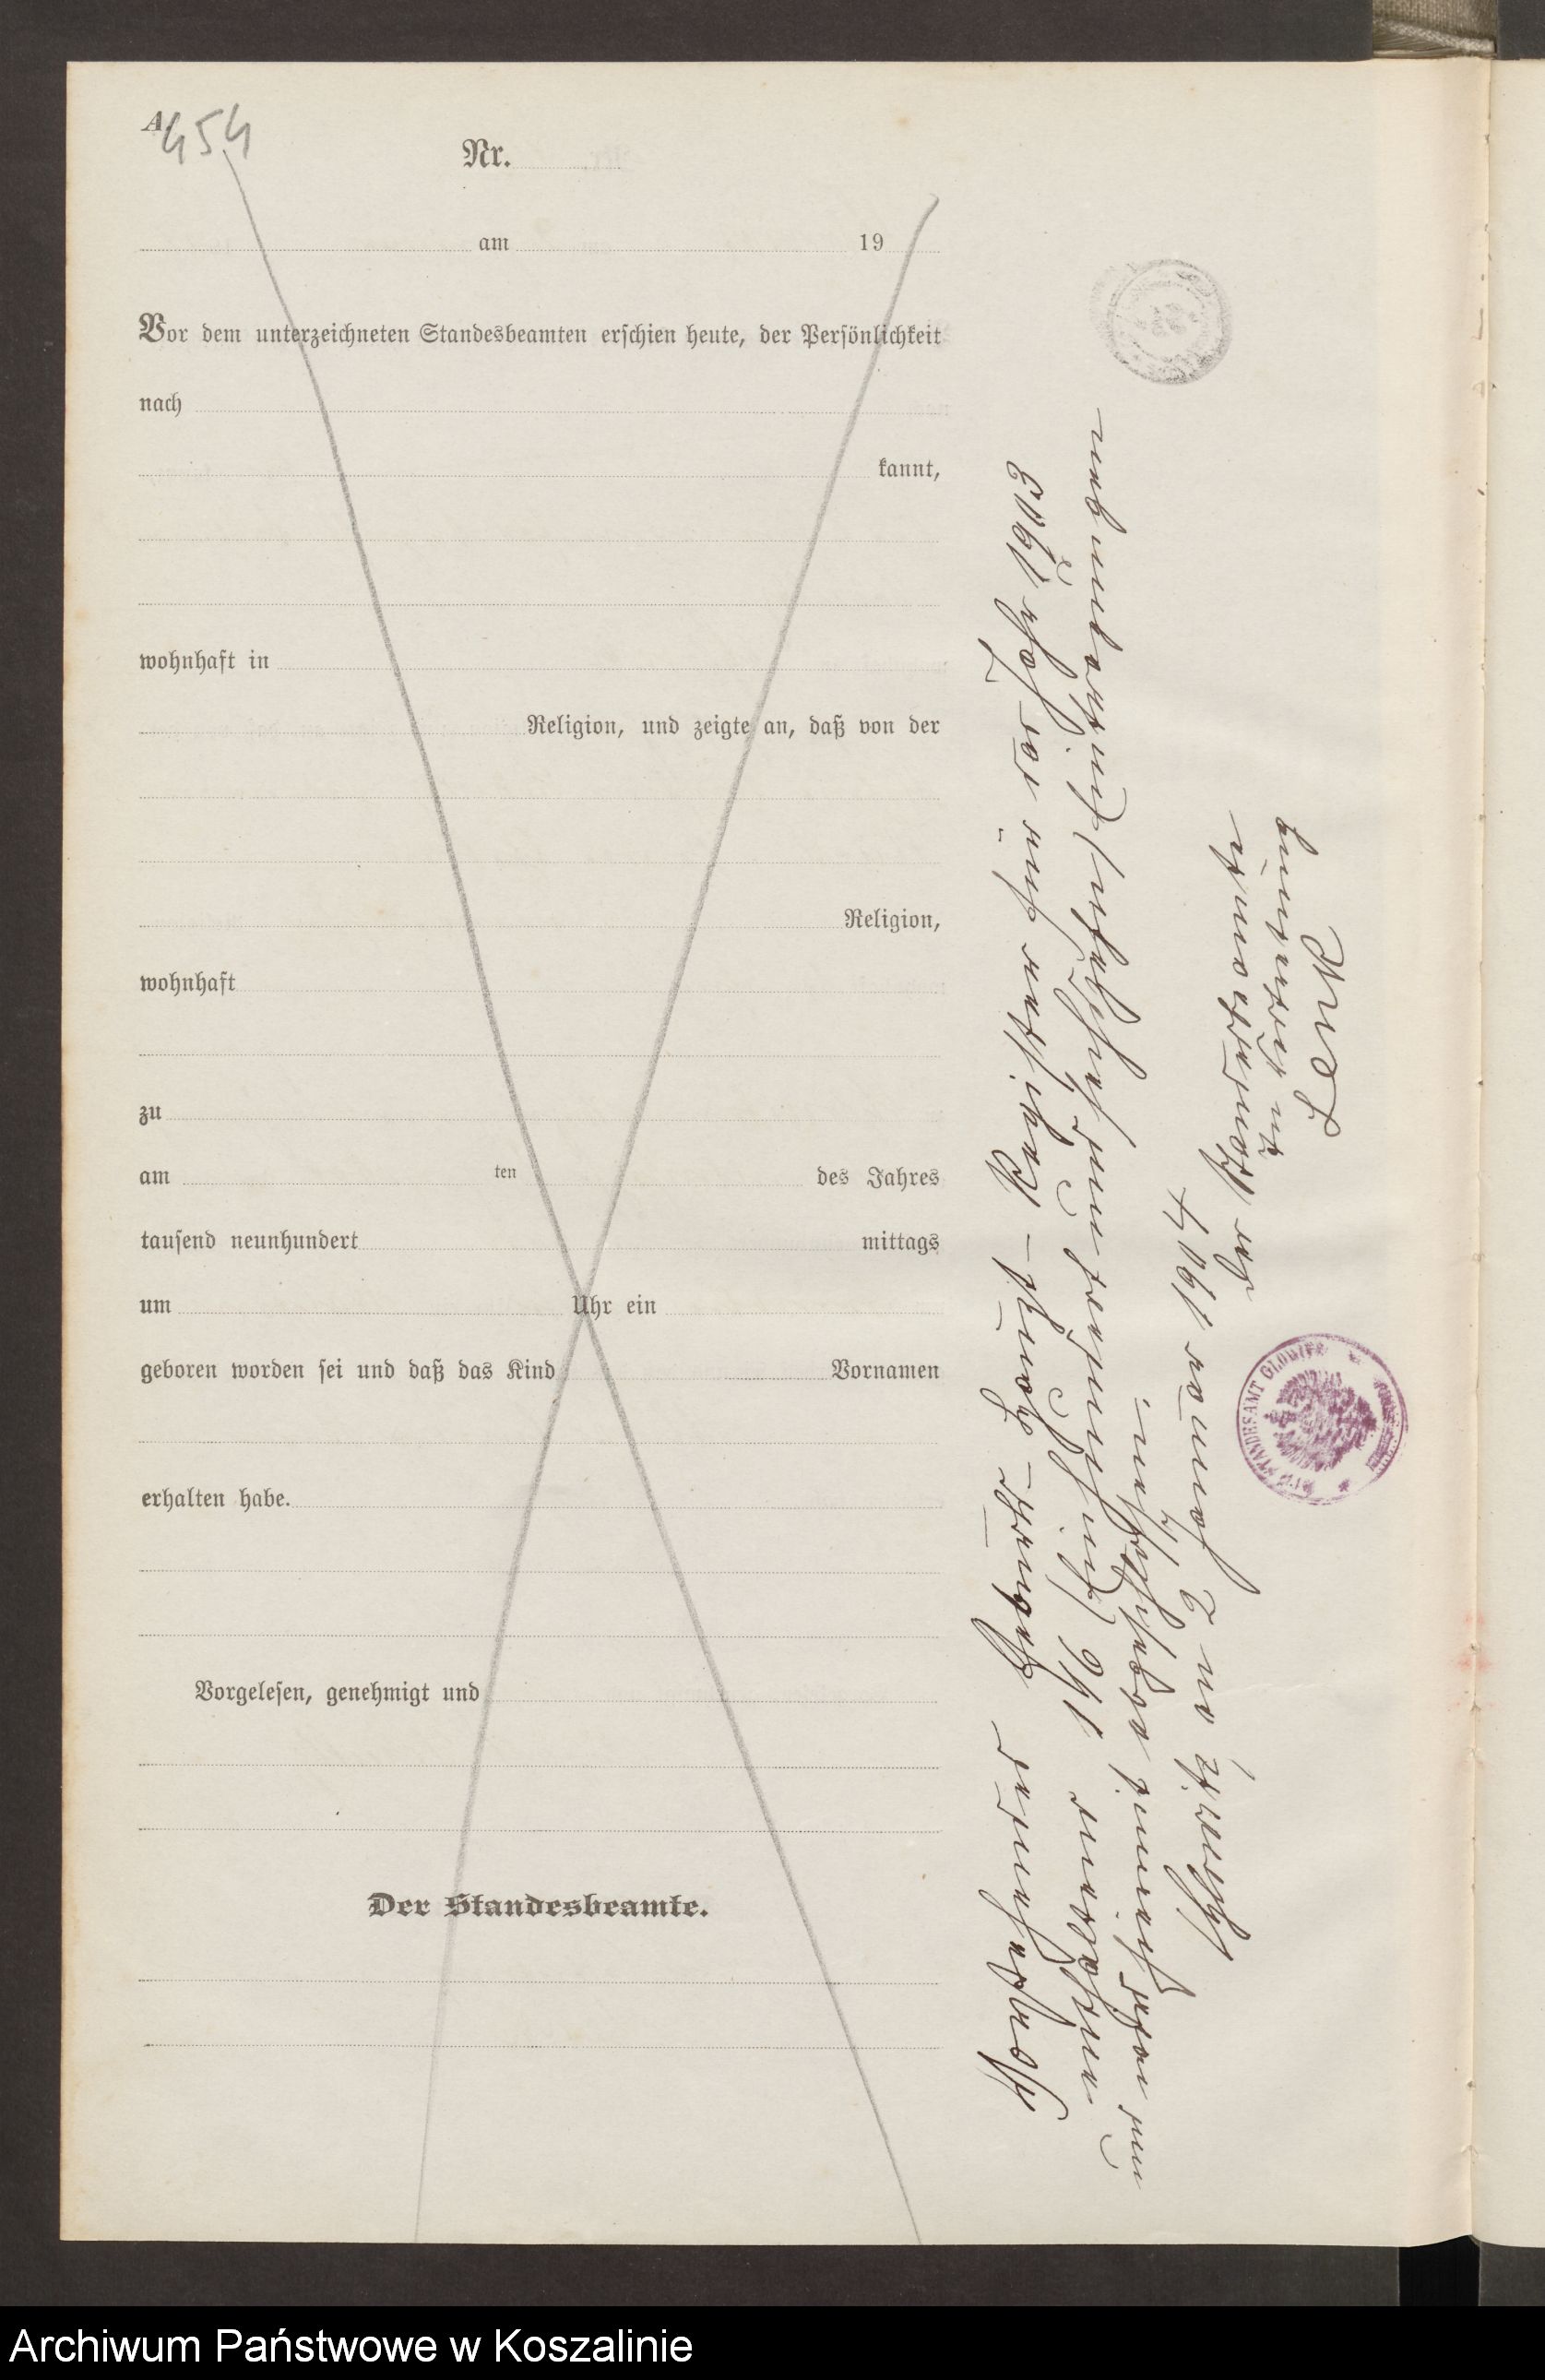 A.
454
Nr.
am 19
Vor dem unterzeichneten Standesbeamten erschien heute, der Persönlichkeit
nach
kannt,
wohnhaft in
Religion, und zeigte an, daß von der
Religion,
wohnhaft
zu
am ten des Jahres
tausend neunhundert mittags
um Uhr ein
geboren worden sei und daß das Kind Vornamen
erhalten habe.
Vorgelesen, genehmigt und
Der Standesbeamte.
Vorstehendes Geburts-Haupt-Register für das Jahr 1903
mit 196 (Ein hundert sechs und
und wird hiermit abgeschlossen.
Glowitz, am 2 Januar 1904
Der Standesbeamte
in Vertretung
STANDESAMT GLOWITZ
Archiwum Państwowe w Koszalinie